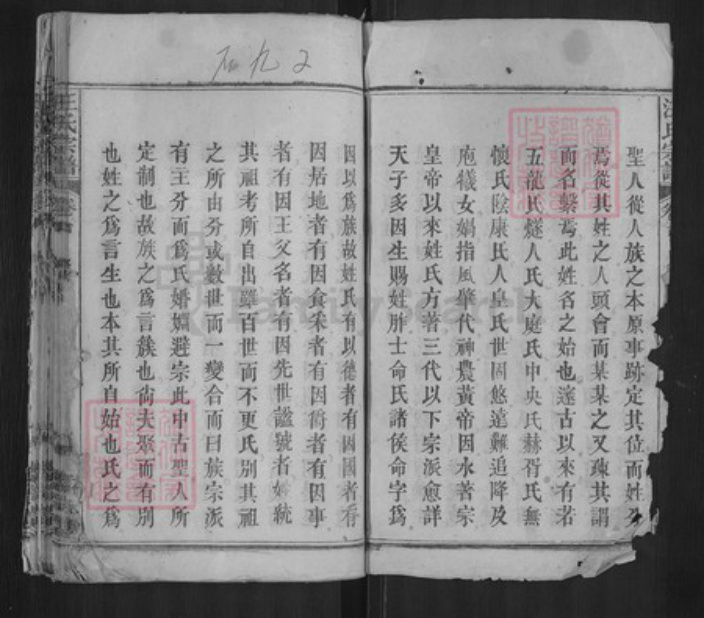 聖人從人族之本原事跡定其位而姓分
焉從其姓之人頭會而某某之又疎其謂
而名繫焉此姓各之始也邃古以來有若
五龍氏燧人氏大庭氏中央氏赫胥氏無
懷氏陰康氏人皇氏世固悠遠難追降及
庖犧女媧指風肇代神農黃帝因水著宗
皇帝以來姓氏方著三代以下宗派愈詳
天子多因生賜姓胙士命氏諸侯命字爲
因以爲族故姓氏有以德者有因國者有
因居地者有因食采者有因衛者有因事
者有因王父名者有因先世謚號者姓統
其祖考所自出雖百世而不更氏別其祖
之所由分或數世而一變合而曰族宗派
有主分而爲氏婚姻避宗此中古聖人所
定制也故族之爲言簇也尚夫聚而有別
也姓之爲言生也本其所自始也氏之爲
汪氏宗譜
汪氏宗譜
FamilySearch